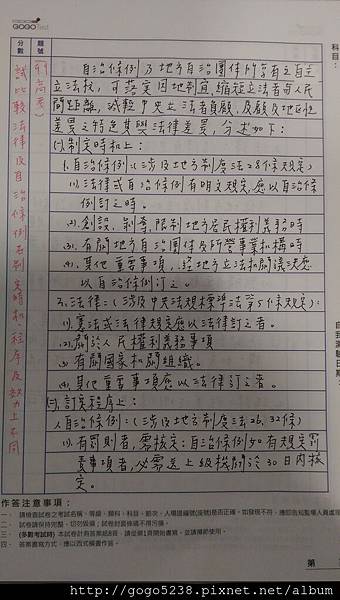 GOGO
科目：
分數
題號
(97高考)
試比較法律及自治條例在制定時機、程序及效力上不同
自治條例乃地方自治團體所享有之自主
立法權，可落實因地制宜，縮短立法者與人民
間距離，減輕中央立法者負顧，及顧及地區性
差異之特色其與法律差異，分述如下：
(一)制定時機上：
1.自治條例(涉及地方制度法28條規定)
(1).法律或自治條例有明文規定，應以自治條
例訂之時。
(2).創設、剝奪、限制地方居民權利義務時
(3).有關地方自治團體及所營事業機構時
(4).其他重要事項，經地方立法機關議決應
以自治條例訂之。
2.法律：(涉及中央法規標準法第5條規定)：
(1).憲法或法律規定應以法律訂之者。
(2).關於人民權利義務事項
(3).有關國家和關組織。
(4).其他重要事項應以法律訂之者。
(二)、訂定程序上：
1.自治條例：(涉及地方制度法26、32條)
(1).有罰則者，需核定：自治條例如有規定罰
責事項者，必需送上級機關於30日內核
定。
作答注意事項：
一、請檢查試卷之考試名稱、等級、類科、科目、節次、入場證編號(座號)是否正確。如發現不符，應即告知監場人員處理
二、試卷請保持完整，切勿毀損；試卷封面條碼不得污損。
三、(多數考試時)本試卷計有答案紙8頁，請從第1頁開始書寫，並請掃節使用。
四、答案書寫方式，應以西式橫書作答。
自我測驗日期：
第
http://gogo5238.pixnet.net/album